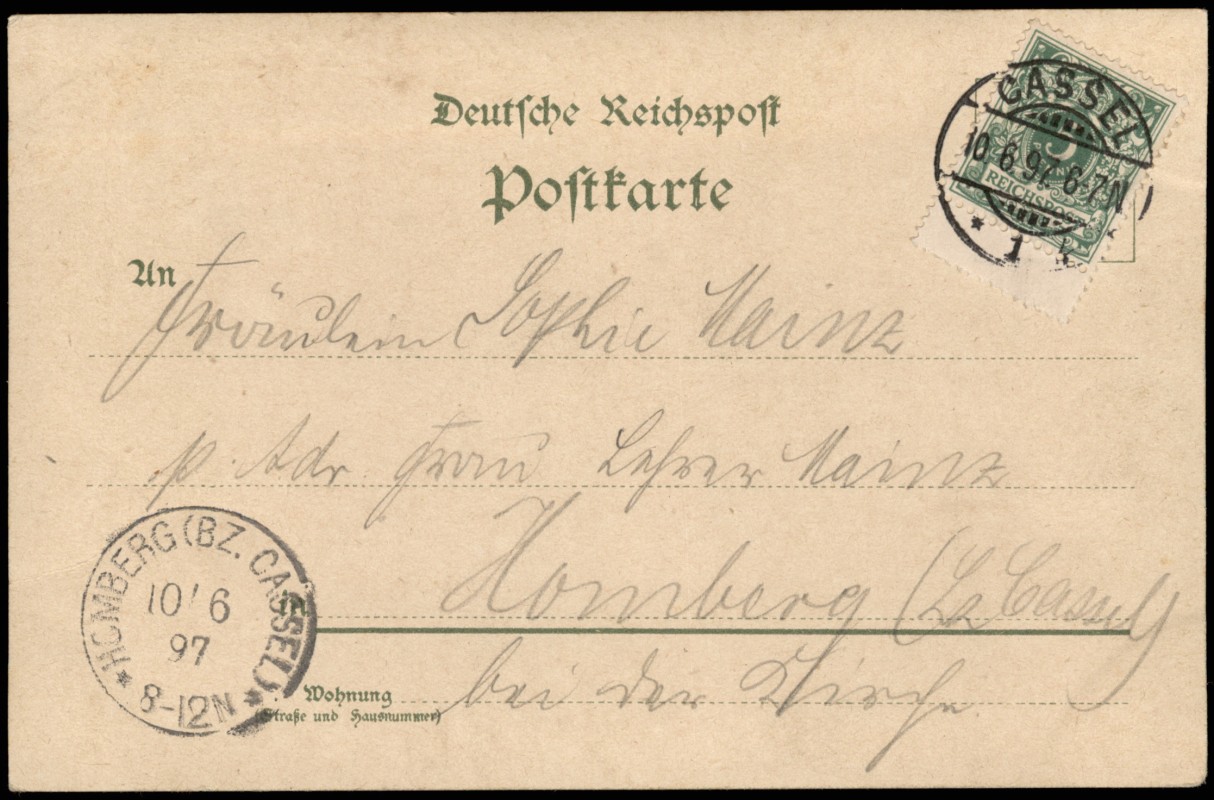 Deutsche Reichspost
Postkarte
CASSEL
10.6.97. 6-7N
* 1 k *
5
REICHSPOST
An
Fräulein Sophie Mainz
p. Adr. Frau Lehrer Mainz
Homberg (Bz Cassel)
bei der Kirche
HOMBERG (BZ. CASSEL)
10/6
97
* 8-12N *
Wohnung
(Straße und Hausnummer)